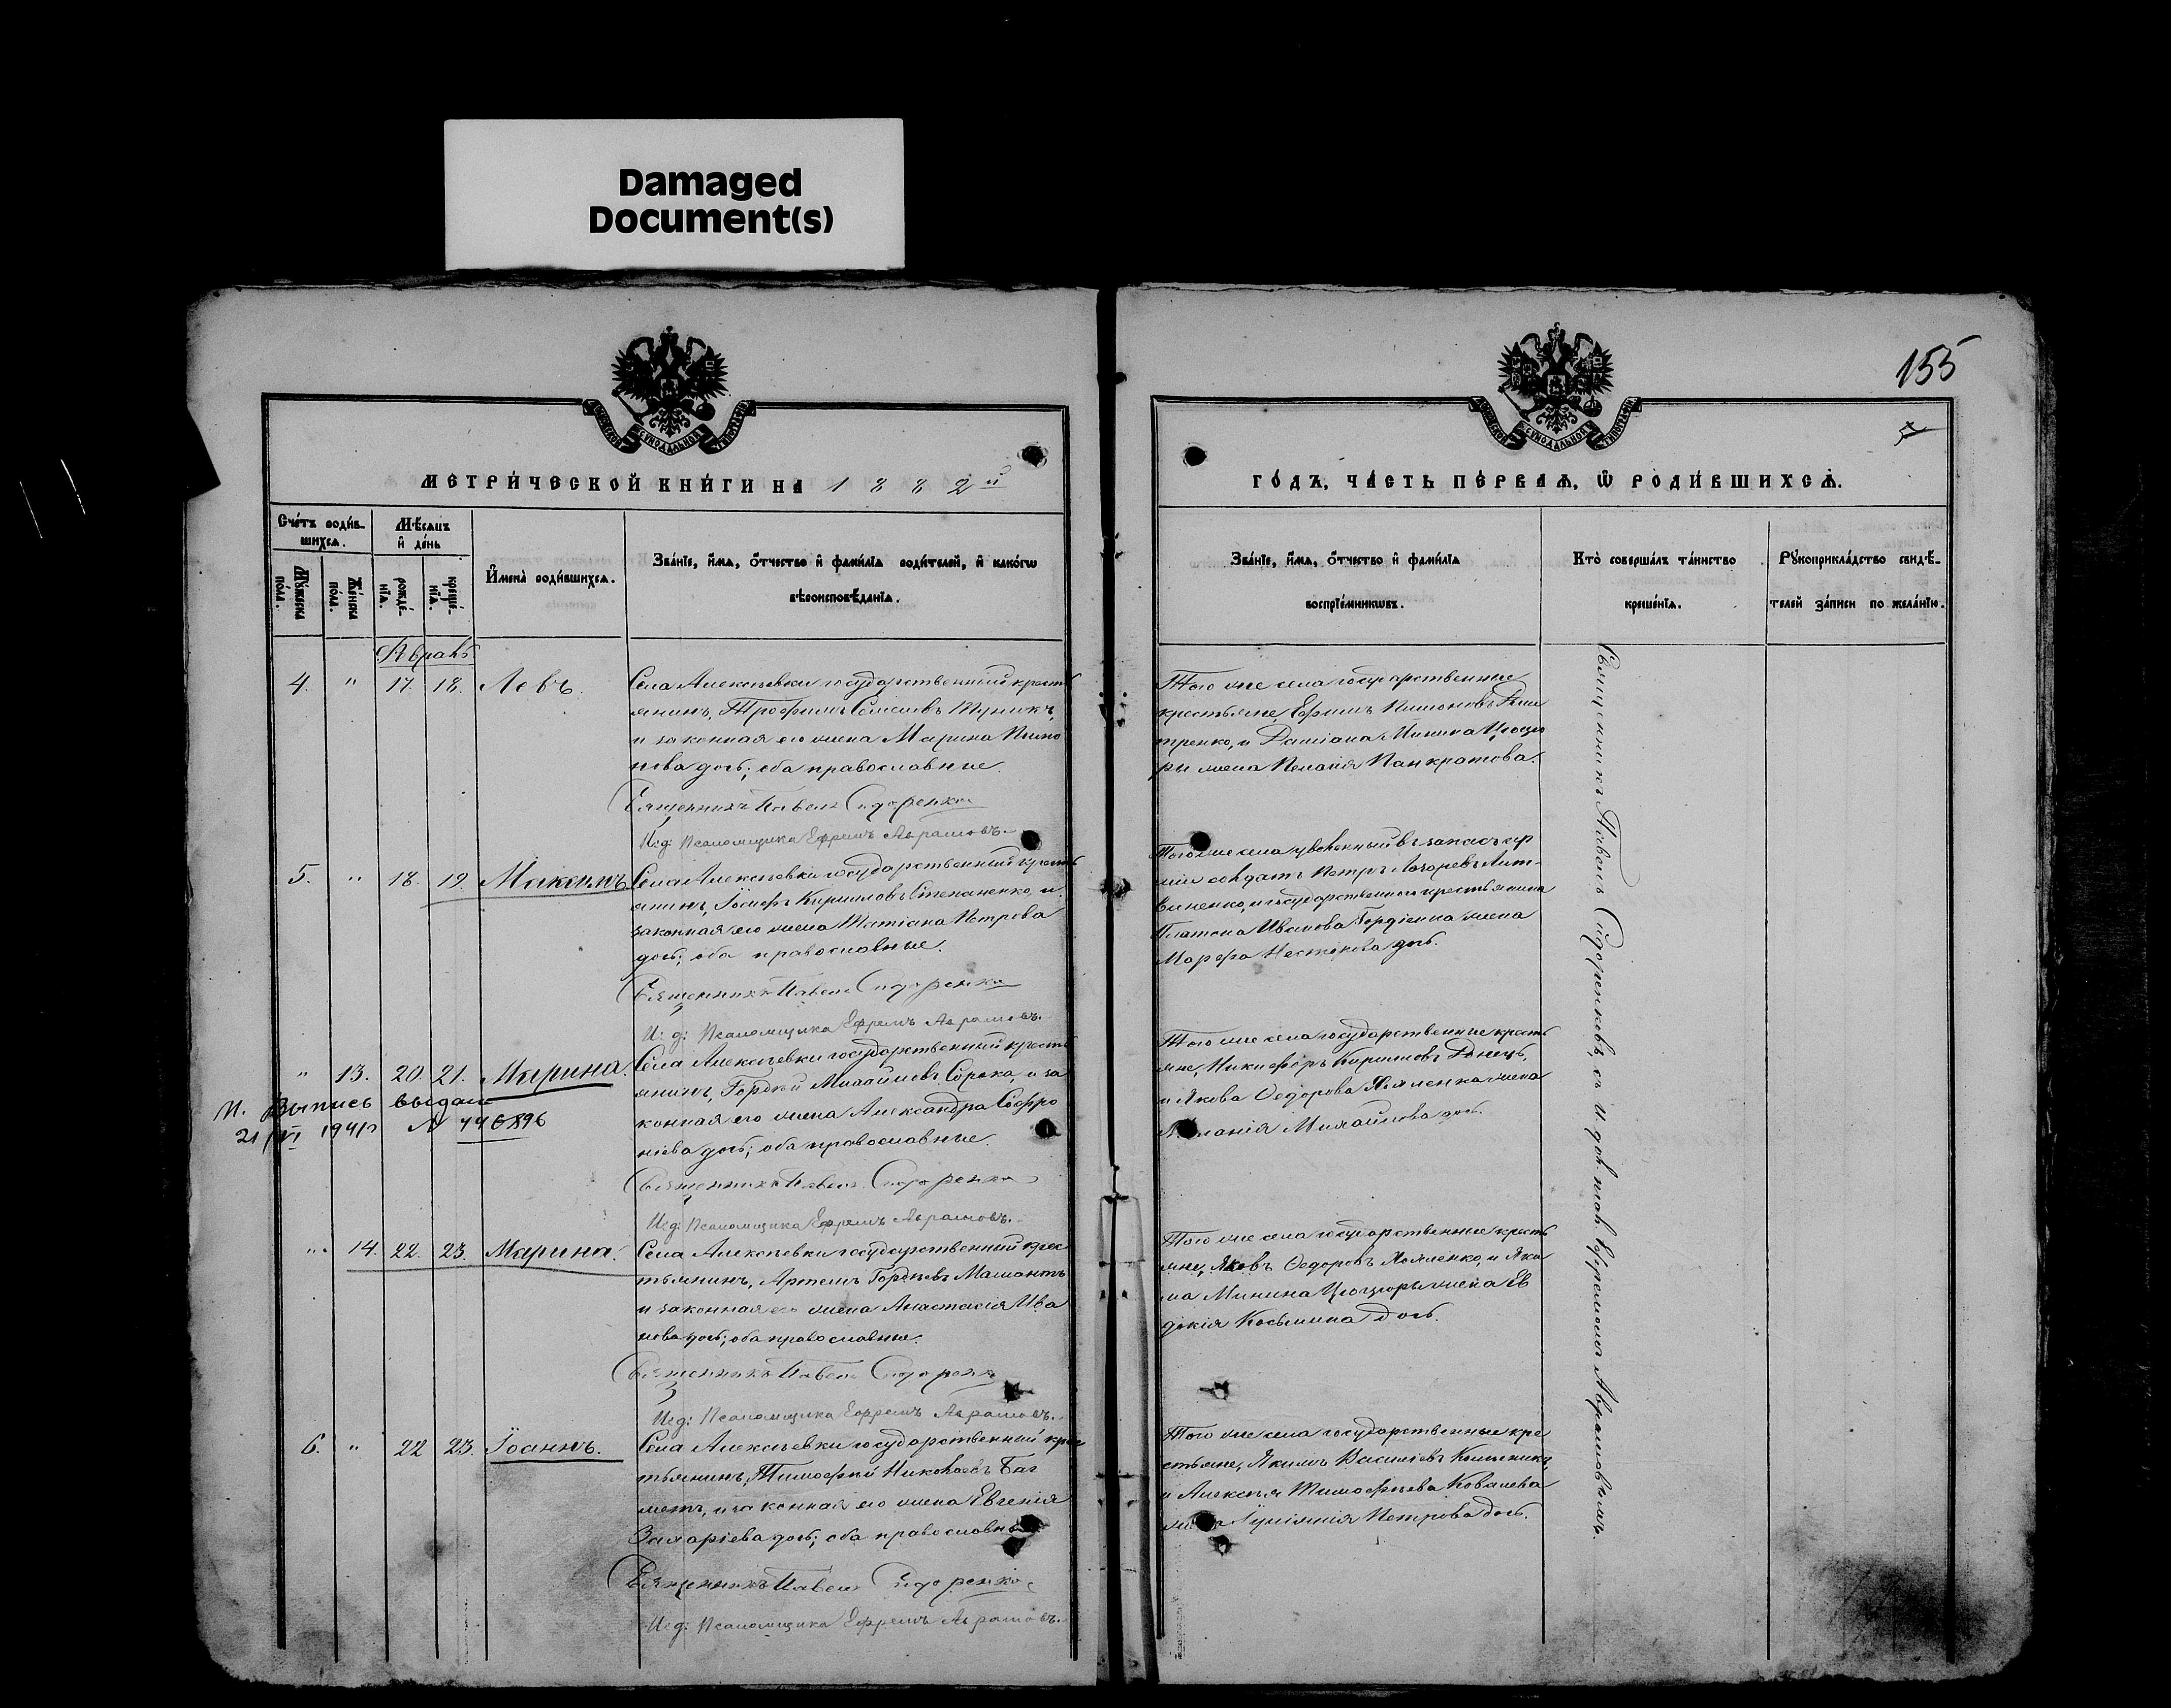 Damaged
Document(s)
155
МЕТРИ́ЧЕСКОЙ КНИ́ГИ НА 1882й
ГО́ДЪ, ЧА́СТЬ ПЕ́РВАѦ, Ѡ҆ РОДИ́ВШИХСѦ.
Сче́тъ роди́в-
шихсѧ.
Мꙋ́жеска по́ла.
Же́нска по́ла.
Мѣ́сѧцъ
и҆ де́нь
рожде́-
нїѧ.
креще́-
нїѧ.
И҆мена̀ роди́вшихсѧ.
Зва́нїе, и҆́мѧ, ѻ҆́тчество и҆ фами́лїа роди́телей, и҆ како́гѡ
вѣроисповѣ́данїѧ.
Зва́нїе, и҆́мѧ, ѻ҆́тчество и҆ фами́лїа
воспрїе́мникѡвъ.
Кто̀ соверша́лъ та́инство
креще́нїѧ.
Рꙋкоприкла́дство свидѣ́-
телей за́писи по жела́нїю.
4. " 17. 18. Левъ.
Села Алексѣевки государственный кресть
янинъ, Трофимъ
и законная его жена Марина Пимо
нова дочь; оба православные.
Священникъ Павелъ Сидоренко
И.д: Псаломщика Ефремъ Аврамовъ.
Того же села государственные
крестьяне, Ефимъ Пимоновъ Дми
тренко, и Даміана Минина Цюцю
ры жена Пелагія Панкратова.
5. " 18. 19. Максимъ
Села Алексѣевки государственный кресть
янинъ, Іосифъ Кириловъ Степаненко, и
законная его жена Татіана Петрова
дочь; оба православные.
Священникъ Павелъ Сидоренко
И: д: Псаломщика Ефремъ Аврамовъ.
Того же села уволенный въ запасъ ар
міи солдатъ Петръ Лазаревъ Лит-
виненко, и государственнаго крестьянина
Платона Иванова Гордіенка жена
Марфа дочь.
" 13. 20 21. Марина.
Села Алексѣевки государственный кресть
янинъ, Гордѣй Михайловъ Сорока, и за
конная его жена Александра Софро
ніева дочь; оба православные.
Священникъ Павелъ Сидоренко
И.д: Псаломщика Ефремъ Аврамовъ.
Того же села государственные кресть
яне, Никифоръ Кириловъ Донецъ,
и Якова Ѳедорова жена
Меланія Михайлова дочь.
Выпись выдана
21/VI 1941 № 446896
" 14. 22. 23. Марина.
Села Алексѣевки государственный крес
тьянинъ, Артемъ Гордѣевъ
и законная его жена Анастасія Ива
нова дочь; оба православные.
Священникъ Павелъ Сидоренко
И.д: Псаломщика Ефремъ Аврамовъ.
Того же села государственные кресть
яне, Яковъ Ѳедоровъ и Яки
ма Минина Цюцюры жена Ев
докія Косьмина дочь.
6. " 22 23. Іоаннъ.
Села Алексѣевки государственный крес
тьянинъ, Тимофѣй Николаевъ Баг
метъ, и законная его жена Евгенія
Захаріева дочь; оба православные
Священникъ Павелъ Сидоренко
И.д: Псаломщика Ефремъ Аврамовъ.
Того же села государственные кре
стьяне, Якимъ Василіевъ
и Алексѣя Тимофѣева Ковалева
жена Петрова дочь.
Священникъ Павелъ Сидоренковъ, съ и. дол. псал. Ефремомъ Аврамовымъ.